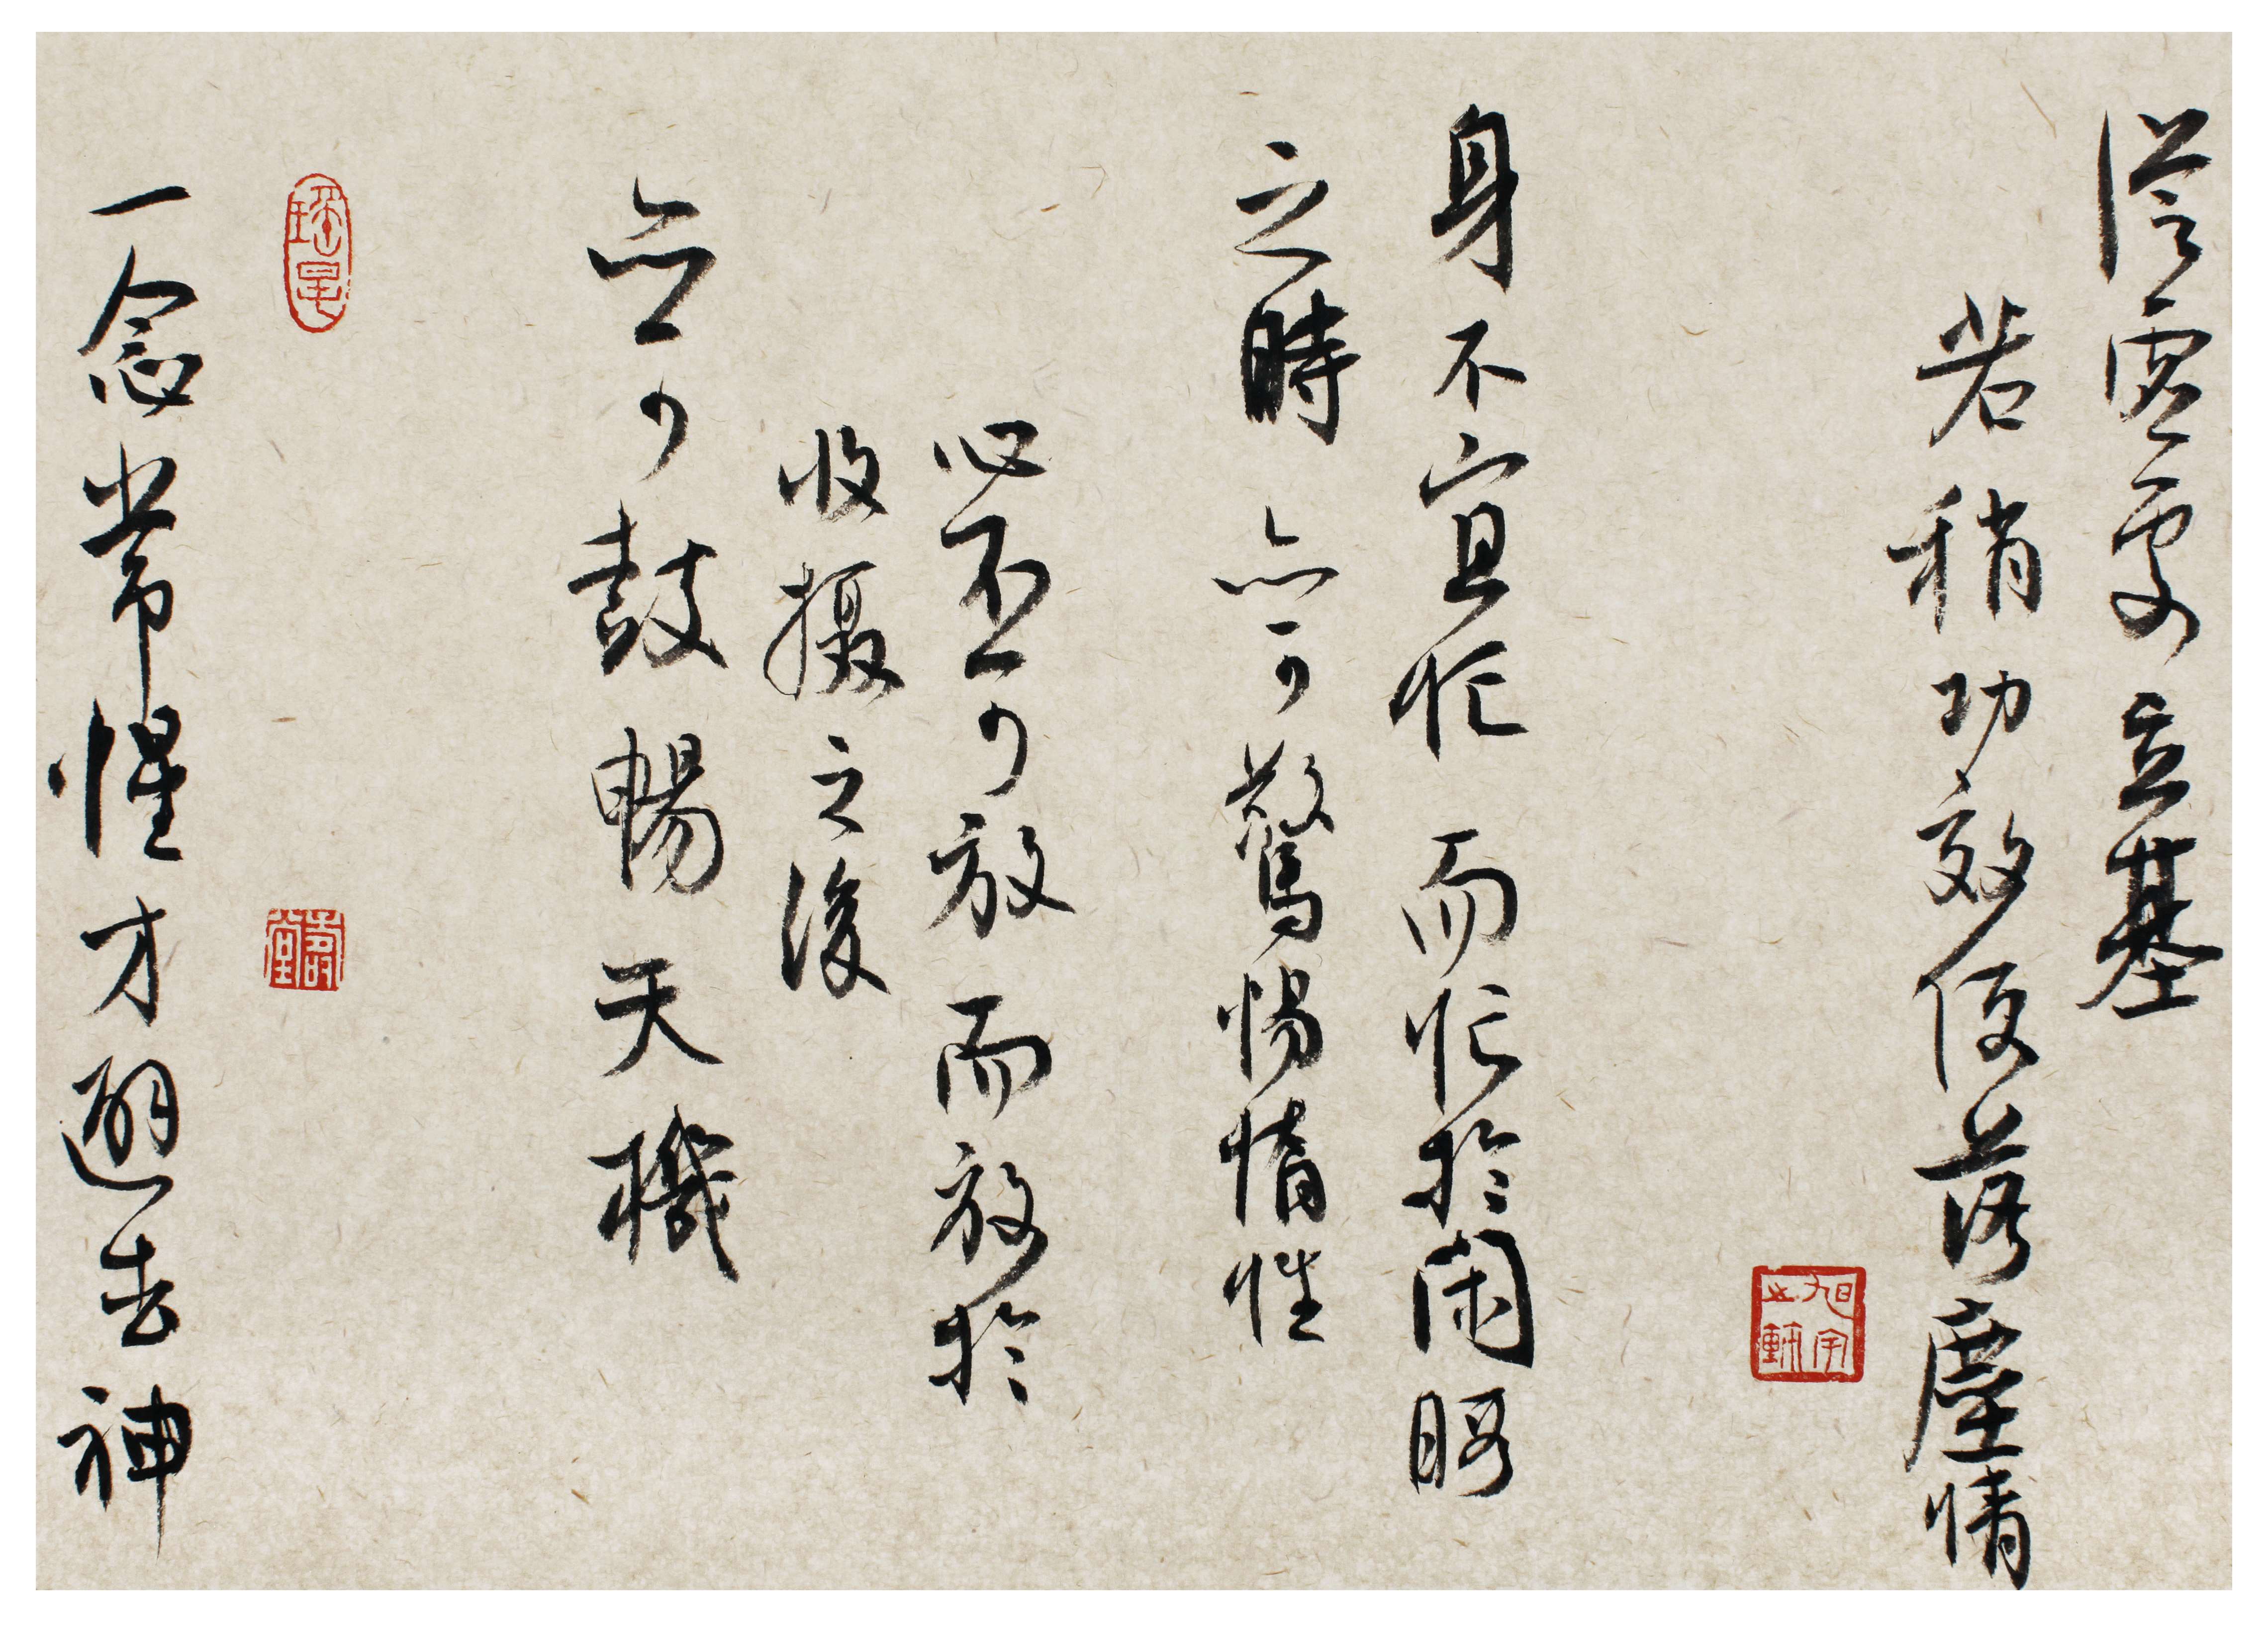 從虛處立基
若稍功效便落塵情
旭宇
身不宜忙而忙於閑暇
之時亦可驚惕惰性
心不可放而放於
收摄之後
亦可鼓暢天機
一念常惺才避去神